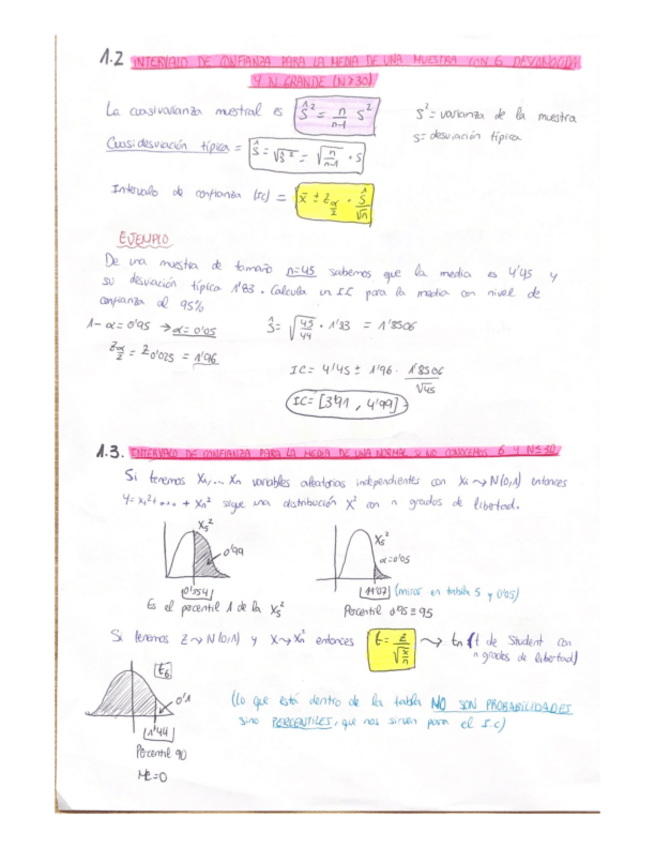 1.2 INTERVALO DE CONFIANZA PARA LA MEDIA DE UNA MUESTRA CON σ DESCONOCIDA
Y N GRANDE (N≥30)
La cuasivarianza muestral es Ŝ² = n/n-1 S²
S² = varianza de la muestra
Cuasidesviación típica = Ŝ = √Ŝ² = √n/n-1 · S
S = desviación típica
Intervalo de confianza (IC) = x̄ ± Zα/2 · Ŝ/√n
EJEMPLO
De una muestra de tamaño n=45 sabemos que la media es 4'45 y
su desviación típica 1'83. Calcula un I.C para la media con nivel de
confianza al 95%
1-α = 0'95 → α = 0'05
Ŝ = √45/44 · 1'83 = 1'8506
Zα/2 = Z0'025 = 1'96
IC = 4'45 ± 1'96 · 1'8506/√45
IC = [3'91 , 4'99]
1.3. INTERVALO DE CONFIANZA PARA LA MEDIA DE UNA NORMAL SI NO CONOCEMOS σ Y N≤30
Si tenemos X₁,... Xn variables aleatorias independientes con Xi ~> N(0,1) entonces
Y = X₁² + ... + Xn² sigue una distribución X² con n grados de libertad.
X₅²
0'99
0'554
Es el percentil 1 de la X₅²
X₅²
α=0'05
11'07 (miras en tabla 5 y 0'05)
Percentil 0'95 ≡ 95
Si tenemos Z ~> N(0,1) y X ~> Xn² entonces t = Z/√X/n ~> tn (t de Student con
n grados de libertad)
t₆
0'1
1'44
Percentil 90
(lo que está dentro de la tabla NO SON PROBABILIDADES
sino PERCENTILES, que nos sirven para el I.C)